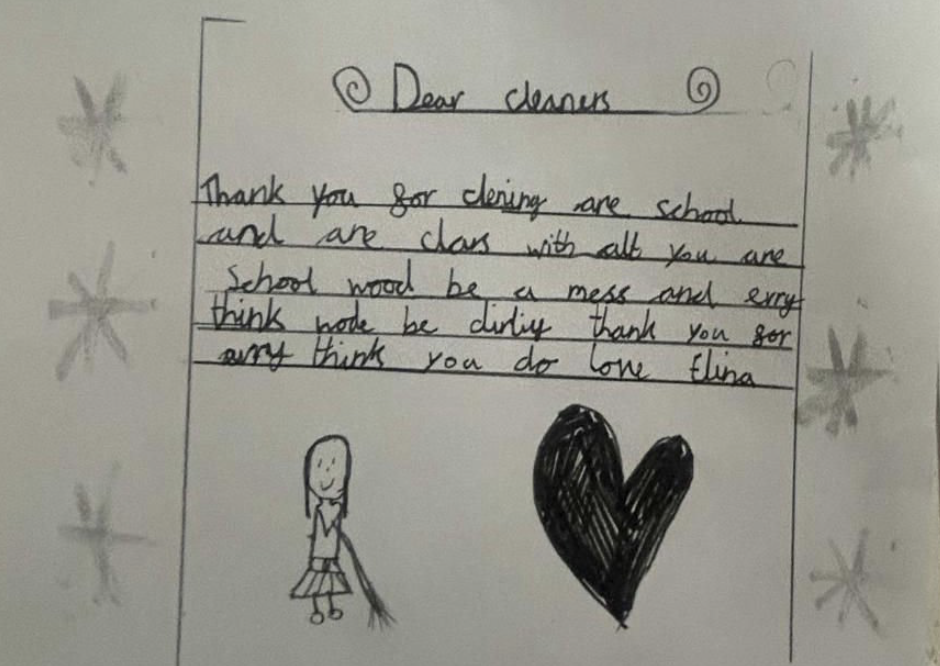 Dear cleaners
Thank you for clening are school
and are class with alt you are
School wood be a mess and erry
think wode be dirtiy thank you for
erry think you do love Elina